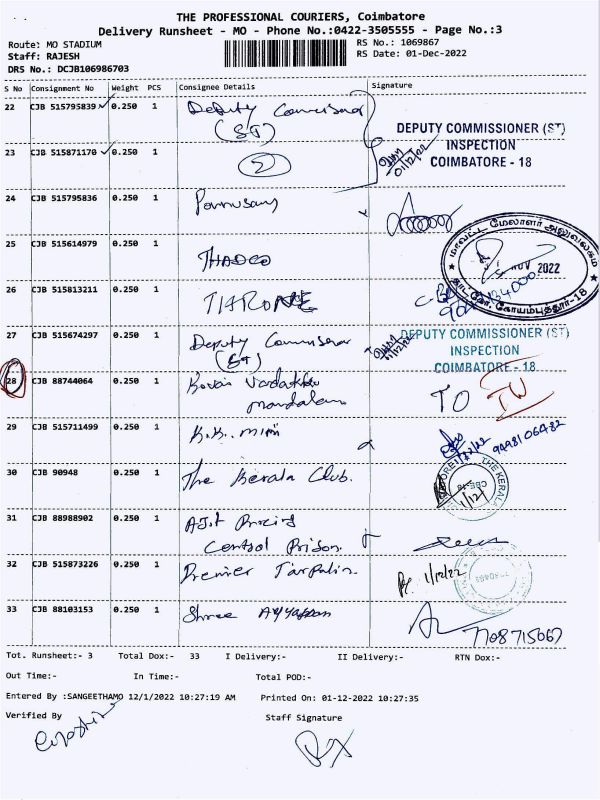 THE PROFESSIONAL COURIERS, Coimbatore
Delivery Runsheet - MO - Phone No.:0422-3505555 - Page No.:3
Route: MO STADIUM
RS No.: 1069867
Staff: RAJESH
RS Date: 01-Dec-2022
DRS No.: DCJB106986703
S No Consignment No Weight PCS Consignee Details Signature
22 CJB 515795839 0.250 1 Deputy Commissioner
(ST)
DEPUTY COMMISSIONER (ST)
INSPECTION
COIMBATORE - 18
01/12/22
23 CJB 515871170 0.250 1 2
24 CJB 515795836 0.250 1 Ponnusamy
25 CJB 515614979 0.250 1 THADCO
மாவட்ட மேலாளர் அலுவலகம்
NOV 2022
தாட்கோ, கோயம்புத்தூர்-18
26 CJB 515813211 0.250 1
27 CJB 515674297 0.250 1 Deputy Commissioner
(ST)
DEPUTY COMMISSIONER (ST)
INSPECTION
COIMBATORE - 18
28 CJB 88744064 0.250 1 Kovai Vadakku
mandalam
TO
29 CJB 515711499 0.250 1 K.K.
9498106482
30 CJB 90948 0.250 1 The Kerala Club.
THE KERALA
CBE-18
1/12/
31 CJB 88988902 0.250 1
Central Prison
32 CJB 515873226 0.250 1 Premier Tarpulin
1/12/22
33 CJB 88103153 0.250 1 Shree Ayyappan
7708715667
Tot. Runsheet:- 3 Total Dox:- 33 I Delivery:- II Delivery:- RTN Dox:-
Out Time:- In Time:- Total POD:-
Entered By :SANGEETHAMO 12/1/2022 10:27:19 AM Printed On: 01-12-2022 10:27:35
Verified By Staff Signature